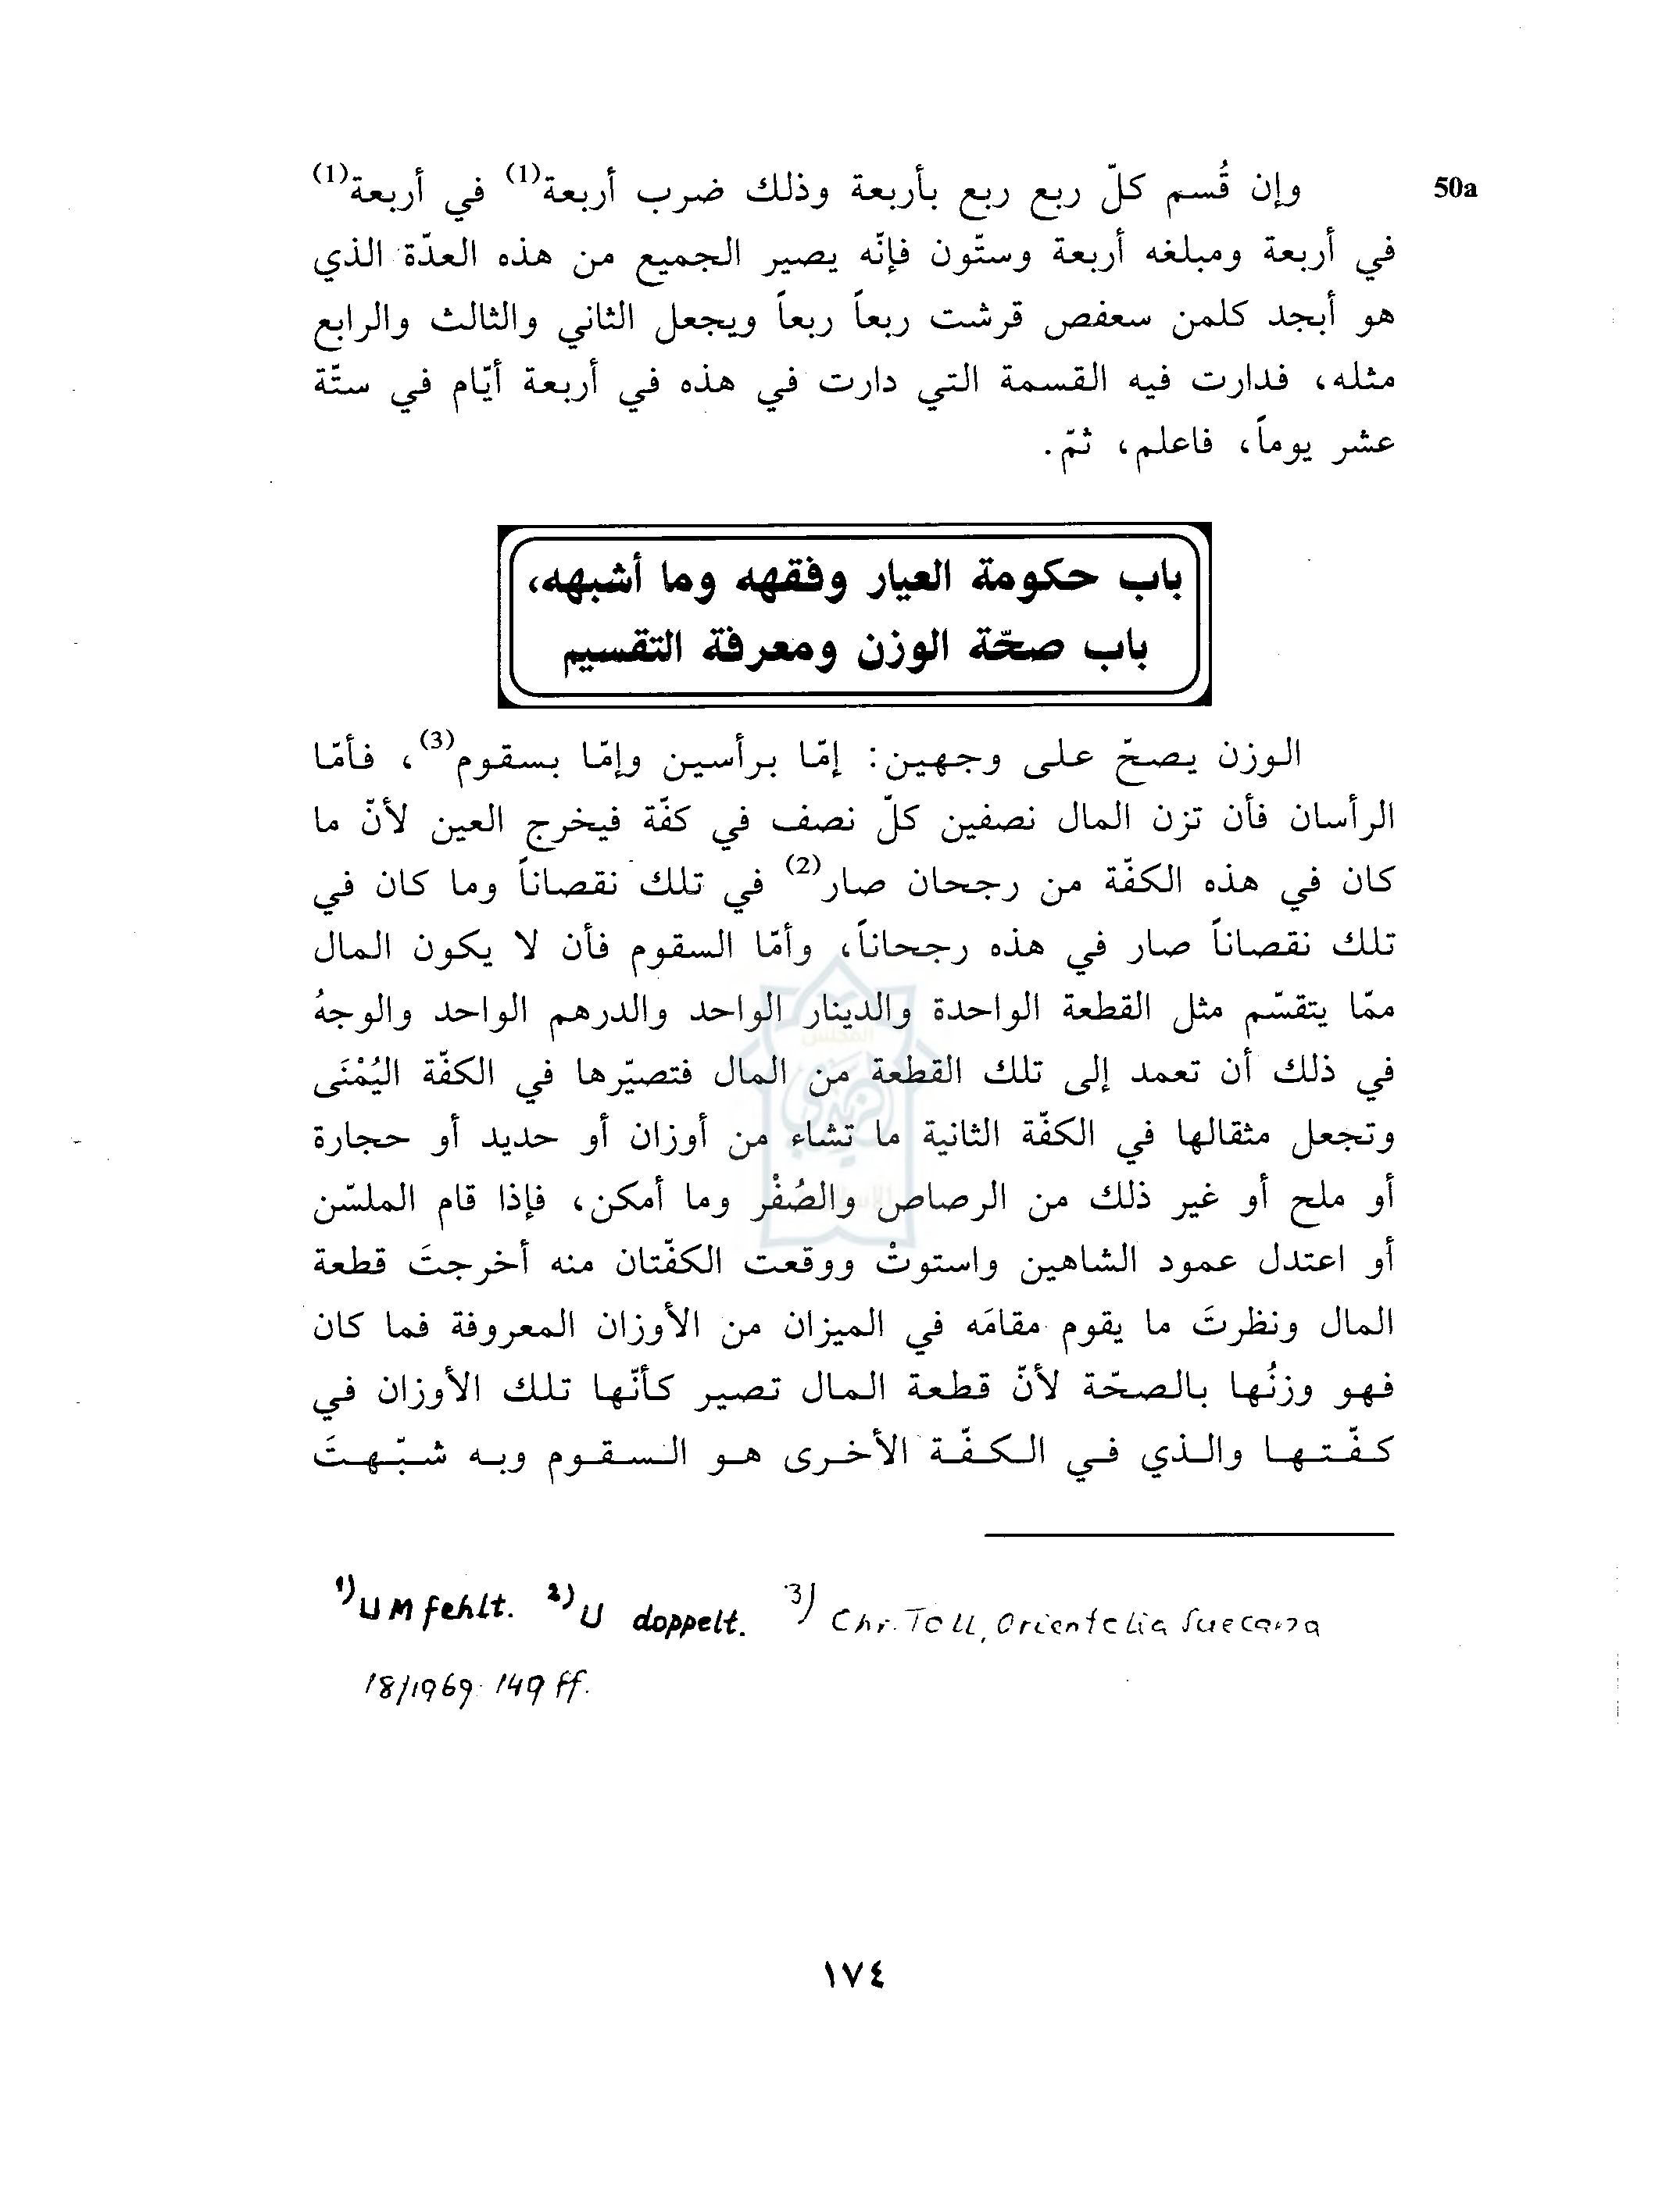 50a
وإن قُسم كلّ ربع ربع بأربعة وذلك ضرب أربعة(1) في أربعة(1)
في أربعة ومبلغه أربعة وستّون فإنّه يصير الجميع من هذه العدّة الذي
هو أبجد كلمن سعفص قرشت ربعاً ربعاً ويجعل الثاني والثالث والرابع
مثله، فدارت فيه القسمة التي دارت في هذه في أربعة أيّام في ستّة
عشر يوماً، فاعلم، ثمّ.
باب حكومة العيار وفقهه وما أشبهه،
باب صحّة الوزن ومعرفة التقسيم
الوزن يصحّ على وجهين: إمّا برأسين وإمّا بسقوم(3)، فأمّا
الرأسان فأن تزن المال نصفين كلّ نصف في كفّة فيخرج العين لأنّ ما
كان في هذه الكفّة من رجحان صار(2) في تلك نقصاناً وما كان في
تلك نقصاناً صار في هذه رجحاناً، وأمّا السقوم فأن لا يكون المال
ممّا يتقسّم مثل القطعة الواحدة والدينار الواحد والدرهم الواحد والوجهُ
في ذلك أن تعمد إلى تلك القطعة من المال فتصيّرها في الكفّة اليُمْنَى
وتجعل مثقالها في الكفّة الثانية ما تشاء من أوزان أو حديد أو حجارة
أو ملح أو غير ذلك من الرصاص والصُفْر وما أمكن، فإذا قام الملسّن
أو اعتدل عمود الشاهين واستوتْ ووقعت الكفّتان منه أخرجتَ قطعة
المال ونظرتَ ما يقوم مقامَه في الميزان من الأوزان المعروفة فما كان
فهو وزنُها بالصحّة لأنّ قطعة المال تصير كأنّها تلك الأوزان في
كفّتها والذي في الكفّة الأخرى هو السقوم وبه شبّهتَ
1) U M fehlt. 2) U doppelt. 3) Chr. Toll, Orientalia Suecana
18/1969 149 ff.
١٧٤